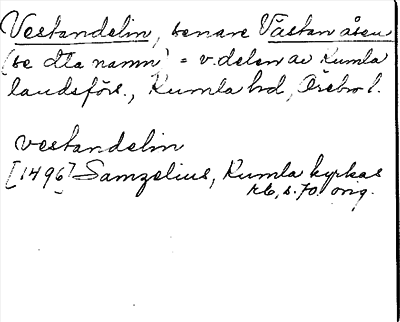 Vestandelin, senare Västan åsen
(se dta namn) = v. delen av Kumla
landsförs., Kumla hd, Örebro l.
vestandelin
[1496] Samzelius, Kumla kyrkas
rb, s. 70. orig.